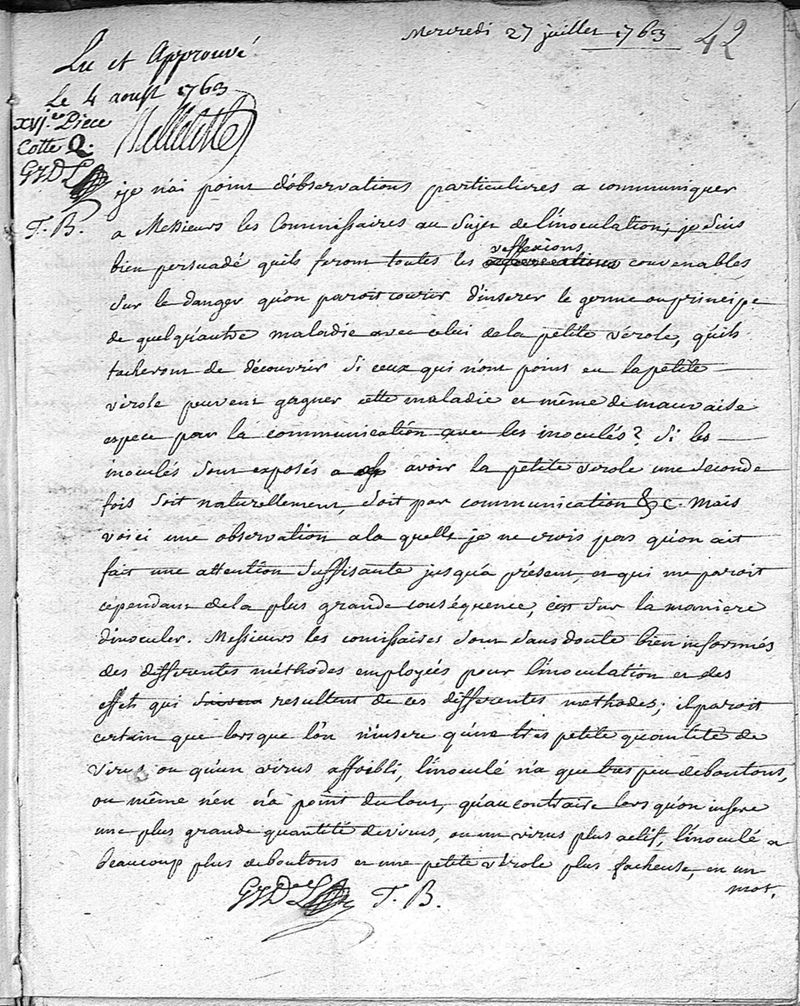 Mercredi 27 juillet 1763
42
Lu et Approuvé
Le 4 aoust 1763
XVIe. Piece
Cotte Q.
T. B.
je n'ai point d'observations particulieres a communiquer
a Messieurs les Commissaires au Sujet de l'inoculation; je suis
reflexions
bien persuadé qu'ils feront toutes les observations convenables
Sur le danger qu'on paroit courir d'inserer le germe ou principe
de quelqu'autre maladie avec celui de la petite vérole, qu'ils
tacheront de découvrir Si ceux qui n'ont point eu la petite
vérole peuvent gagner cette maladie et même de mauvaise
espece par la communication avec les inoculés? Si les
inoculés sont exposés a avoir la petite vérole une Seconde
fois Soit naturellement, Soit par communication &c. Mais
voici une observation a la quelle je ne crois pas qu'on ait
fait une attention Suffisante jusqu'a présent, et qui me paroit
cépendant de la plus grande conséquence, c'est Sur la maniere
d'inoculer. Messieurs les comissaires sont sans doute bien informés
des differentes méthodes employées pour l'inoculation et des
effets qui suivent resultent de ces differentes methodes; il paroit
certain que lorsque l'on n'insere qu'une très petite quantité de
virus ou qu'un virus affoibli, l'inoculé n'a que tres peu de boutons,
ou même n'en n'a point du tout, qu'au contraire lorsqu'on insere
une plus grande quantité de virus, ou un virus plus actif, l'inoculé a
beaucoup plus de boutons et une petite vérole plus facheuse, en un
mot,
T. B.